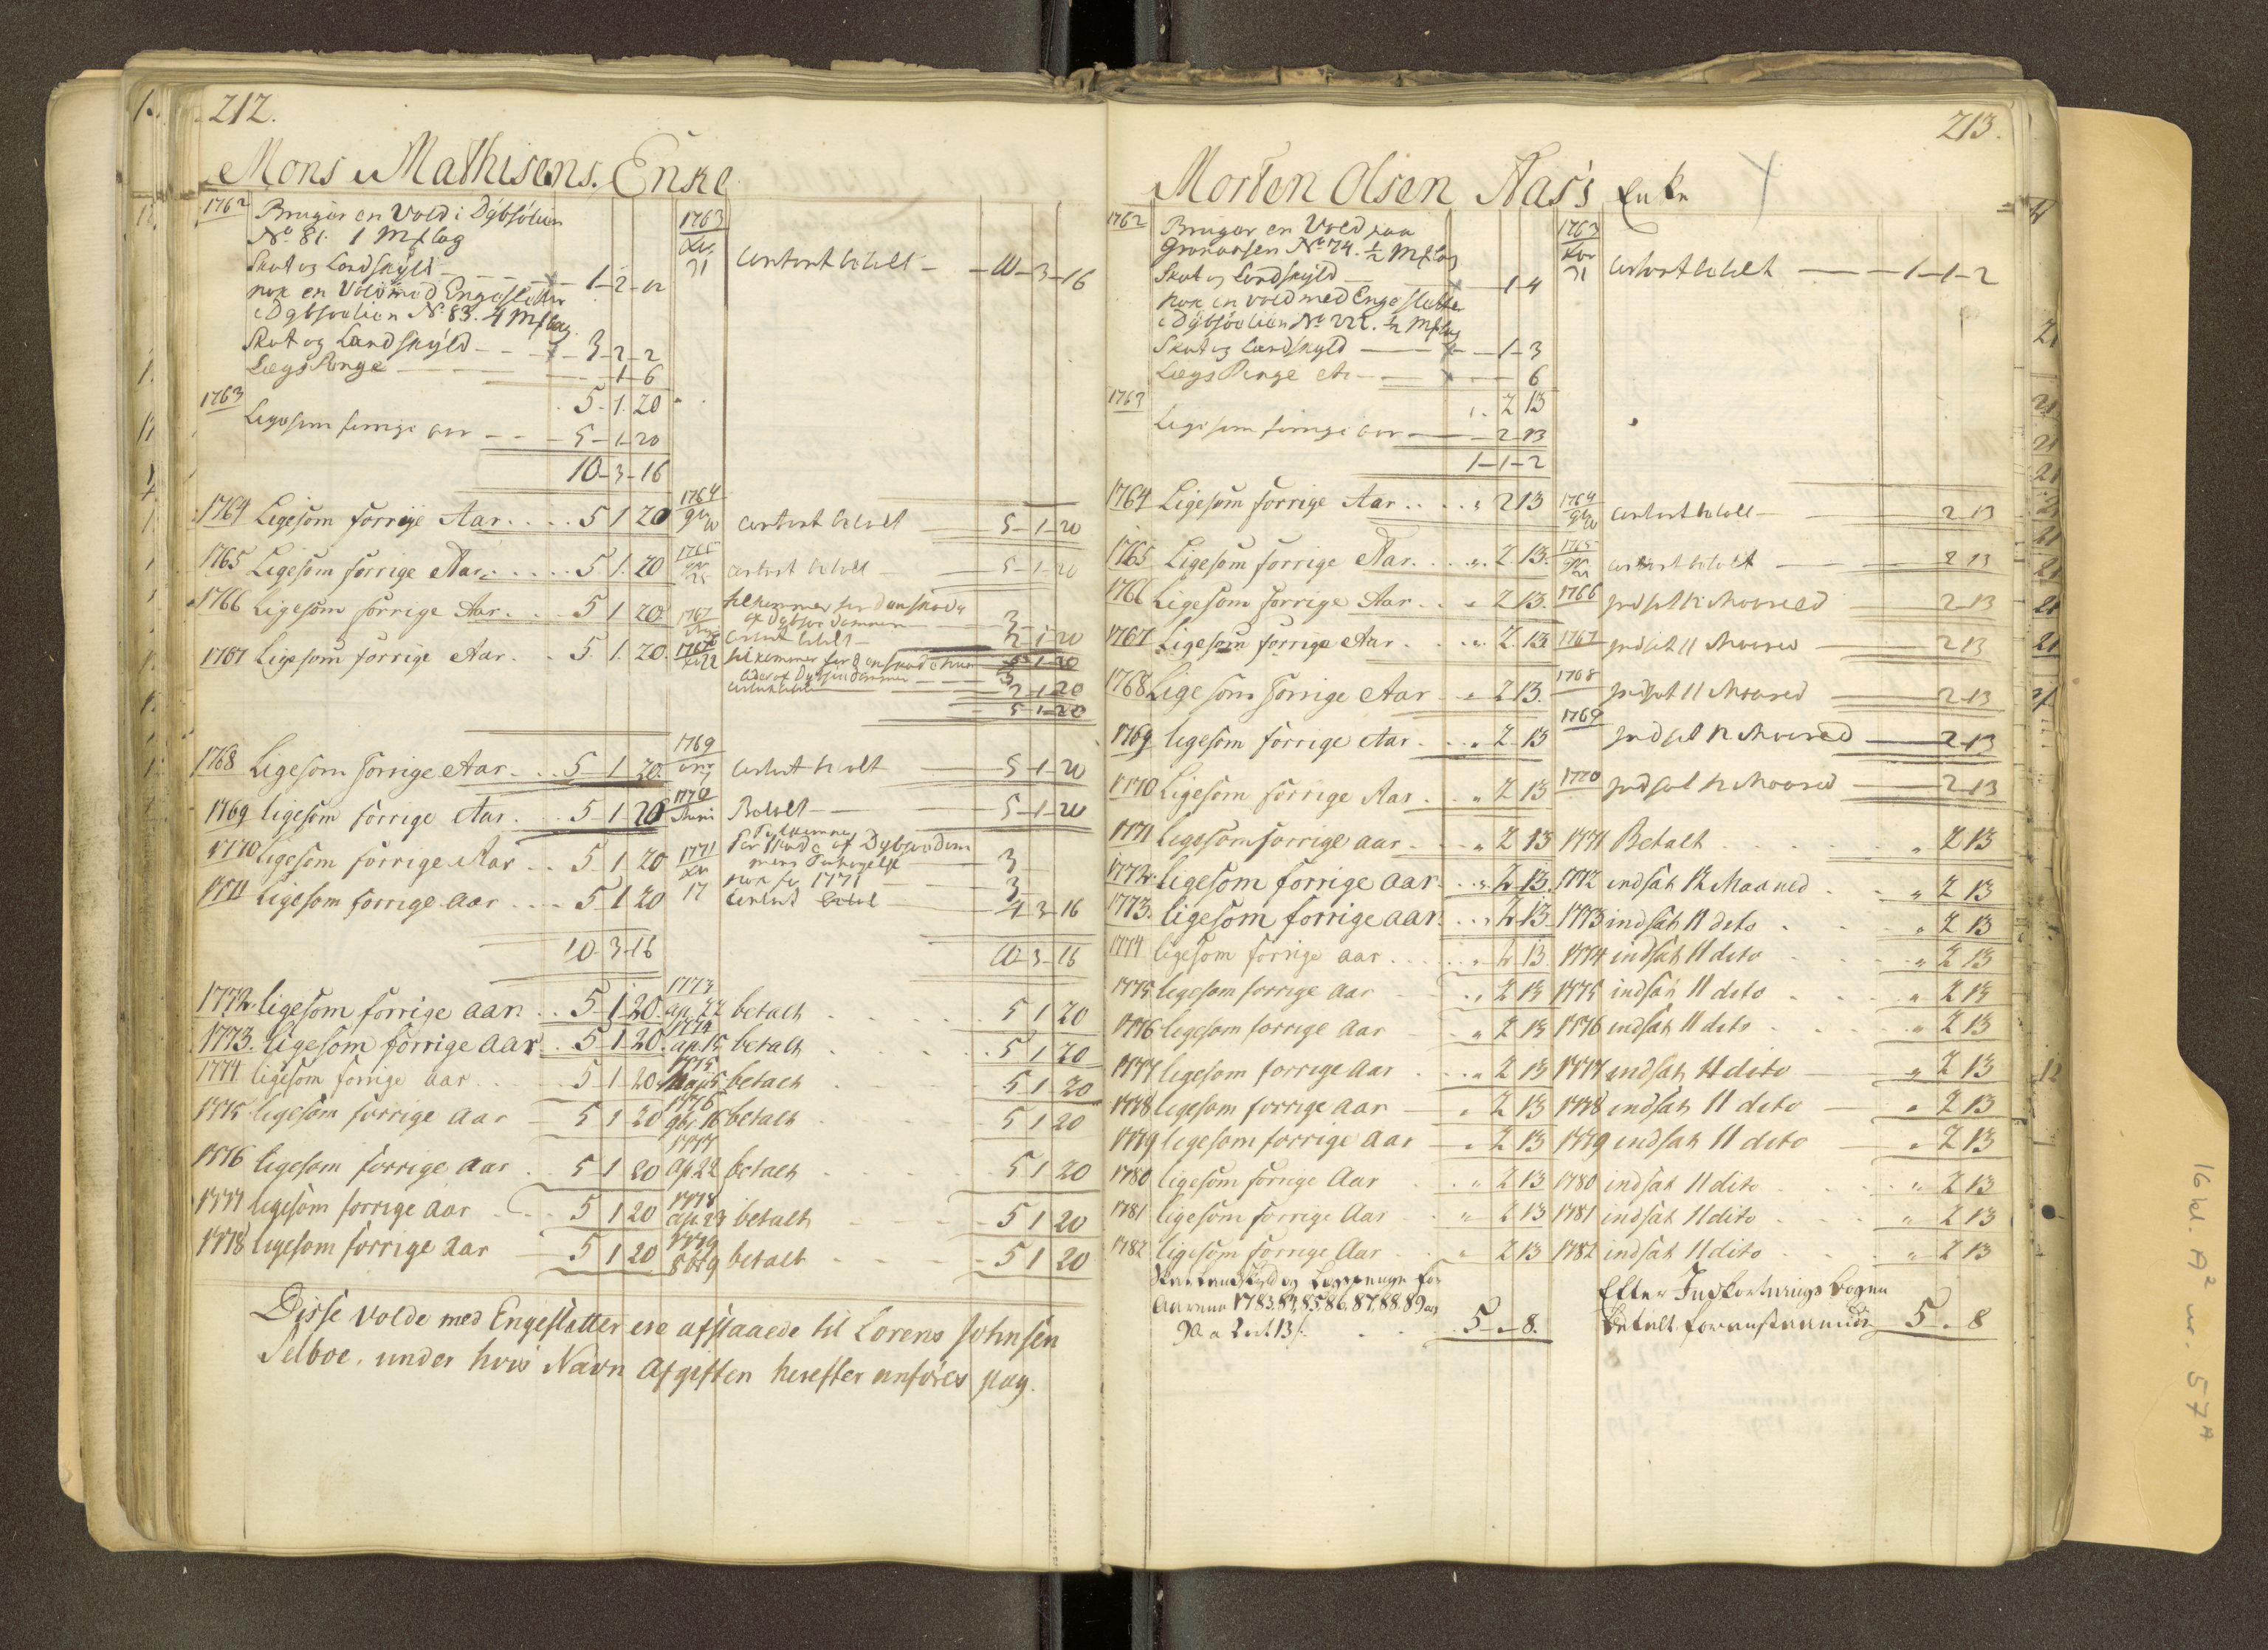 212.
Mons Mathisens Enke
1762 Bruger en Vold i Dybsölien
No 81. 1 Mslag
Skat og Landskyld - - - 1-2-12
nok en Vold med Engesletter
i Dybsoelien No 83. 4 Mslag.
Skat og Landskyld - - - 3-2-2
LægsPenge - - - 1-6
5. 1. 20
1763 Ligesom forrige aar - - - 5-1-20
10-3-16
1764 Ligesom forrige Aar. . . . 5 1 20
1765 Ligesom forrige Aar. . . . 5 1. 20
1766 Ligesom forrige Aar. . . 5 1 20
1767 Ligesom forrige Aar. . 5. 1. 20.
1768 Ligesom forrige Aar. . . 5-1-20.
1769 ligesom forrige Aar. . . 5-1-20
1770 ligesom forrige Aar . . 5. 1. 20
1771 Ligesom forrige aar . . . 5-1 20
10. 3-16
1772. ligesom forrige aar. . . 5-1-20.
1773. ligesom forrige aar. . 5-1-20.
1774 ligesom forrige aar . . . 5-1-20
1775 ligesom forrige aar - 5 1 20
1776 ligesom forrige aar . . 5 1 20
1777 ligesom forrige aar . . . 5 1 20
1778 ligesom forrige aar - 5 1 20
1763
31 contant betalt - - 10-3-16
1764
contant betalt - 5-1-20
1765
contant betalt - 5-1-20
1767
3-
contant betalt - 2-1-20
5-1-20
3
2-1-20
5-1-20
1769
contant betalt - 5-1-20
1770
Betalt - 5-1-20
1771
17
3-
nok for 1771 - 3-
Contant betalt - 4-3-16
10-3-16
1773
ap. 22 betalt . . . 5 1 20
1774
ap. 15 betalt . . . 5 1 20
1775
Maj 5 betalt . . . 5 1 20
1776
9br. 16 betalt . . . 5 1 20
1777
Ap 22 betalt . . . 5 1 20
1778
ap. 23 betalt . . . 5 1 20
1779
betalt . . . 5 1 20
Disse Volde med Engesletter ere afstaaede til Lorens Johnsen
Selboe, under hvis Navn Afgiften herefter anføres pag.
213.
Morten Olsen Aas's Enke
1762 Bruger en Vold paa
Graaaasen No 74. ½ Mslag
Skat og Landskyld - - 1-4
nok en vold med Engesletter
i Dybsöelien No 222. ½ Mslag
Skat og Landskyld - - 1-3
LægsPenge - - 6
2 13
1763 Ligesom forrige aar - 2-13
1-1-2
1764 Ligesom forrige Aar . . " 2 13
1765 Ligesom forrige Aar. . . " 2 13.
1766 Ligesom forrige Aar . . " 2 13.
1767 Ligesom forrige Aar . . " 2. 13
1768 Ligesom forrige Aar " 2 13.
1769 ligesom forrige Aar . . " 2 13
1770 Ligesom forrige Aar . . " 2 13
1771 ligesom forrige aar . . " 2 13
1772. ligesom forrige aar . . " 2 13.
1773. ligesom forrige aar . . " 2 13
1774 ligesom forrige aar . . . " 2 13.
1775 ligesom forrige aar - " 2 13
1776 ligesom forrige aar " 2 13
1777 ligesom forrige aar . . " 2 13
1778 ligesom forrige aar - " 2 13
1779 ligesom forrige aar - " 2 13
1780 ligesom forrige Aar . . " 2 13
1781 ligesom forrige Aar . . " 2 13
1782 ligesom forrige Aar . " 2 13
Skat Landskyld og Lægspenge for
Aarene 1783, 84, 85, 86, 87, 88, 89 og
90 a 2 ort 13 s. . . . 5 " 8.
1763
31 contant betalt - - 1-1-2
1764
contant betalt - 2 13
1765
contant betalt - 2 13
1766 indsat 12 Maaned - 2-13
1767 indsat 11 Maaned - 2 13
1768 indsat 11 Maaned - 2-13
1769
indsat 12 Maaned - 2-13
1770 indsat 12 Maaned - 2-13
1771 Betalt . . . " 2 13
1772 indsat 12 Maaned . . " 2 13
1773 indsat 11 deto . . " 2 13
1774 indsat 11 deto . . " 2 13
1775 indsat 11 deto . . " 2 13
1776 indsat 11 deto . . " 2 13
1777 indsat 11 dito - " 2 13
1778 indsat 11 deto - " 2 13
1779 indsat 11 deto - " 2 13
1780 indsat 11 dito . . " 2 13
1781 indsat 11 dito . . " 2 13
1782 indsat 11 dito . . " 2 13
Efter Indkortnings Bogen
betalt foranstaaende 5 " 8
16 kl. A2 nr. 57a